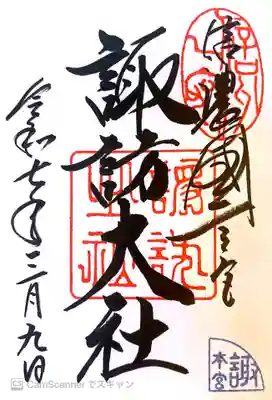 信濃國一之宮
諏訪大社
令和七年三月九日
諏訪大社
諏
本宮
CS CamScanner でスキャン